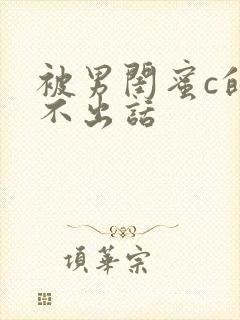 被男閨蜜c的
不出話
項華宗